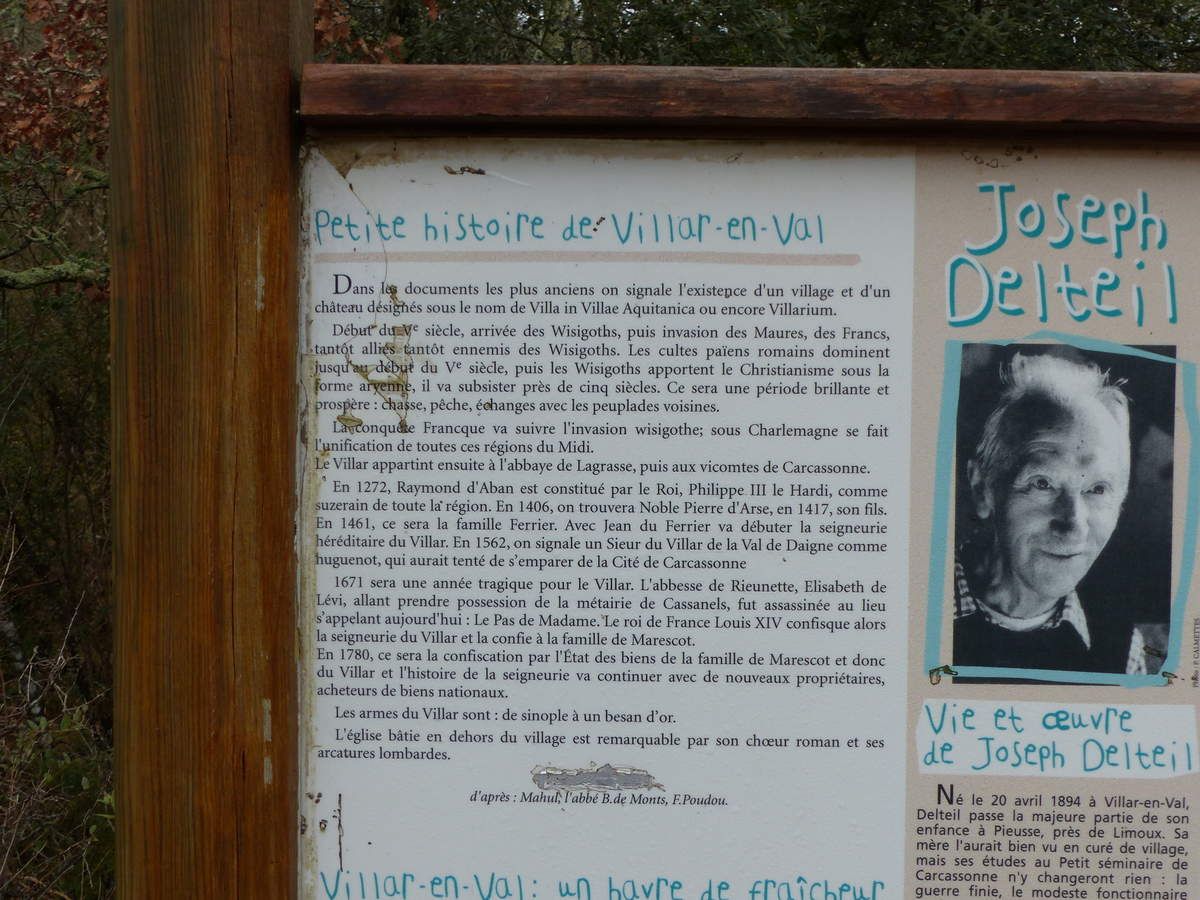 Petite histoire de Villar-en-Val
Dans les documents les plus anciens on signale l'existence d'un village et d'un
château désignés sous le nom de Villa in Villae Aquitanica ou encore Villarium.
Début du Ve siècle, arrivée des Wisigoths, puis invasion des Maures, des Francs,
tantôt alliés tantôt ennemis des Wisigoths. Les cultes païens romains dominent
jusqu'au début du Ve siècle, puis les Wisigoths apportent le Christianisme sous la
forme aryenne, il va subsister près de cinq siècles. Ce sera une période brillante et
prospère : chasse, pêche, échanges avec les peuplades voisines.
La conquête Francque va suivre l'invasion wisigothe; sous Charlemagne se fait
l'unification de toutes ces régions du Midi.
Le Villar appartint ensuite à l'abbaye de Lagrasse, puis aux vicomtes de Carcassonne.
En 1272, Raymond d'Aban est constitué par le Roi, Philippe III le Hardi, comme
suzerain de toute la région. En 1406, on trouvera Noble Pierre d'Arse, en 1417, son fils.
En 1461, ce sera la famille Ferrier. Avec Jean du Ferrier va débuter la seigneurie
héréditaire du Villar. En 1562, on signale un Sieur du Villar de la Val de Daigne comme
huguenot, qui aurait tenté de s'emparer de la Cité de Carcassonne
1671 sera une année tragique pour le Villar. L'abbesse de Rieunette, Elisabeth de
Lévi, allant prendre possession de la métairie de Cassanels, fut assassinée au lieu
s'appelant aujourd'hui : Le Pas de Madame. Le roi de France Louis XIV confisque alors
la seigneurie du Villar et la confie à la famille de Marescot.
En 1780, ce sera la confiscation par l'État des biens de la famille de Marescot et donc
du Villar et l'histoire de la seigneurie va continuer avec de nouveaux propriétaires,
acheteurs de biens nationaux.
Les armes du Villar sont : de sinople à un besan d'or.
L'église bâtie en dehors du village est remarquable par son chœur roman et ses
arcatures lombardes.
d'après : Mahul, l'abbé B.de Monts, F.Poudou.
Villar-en-Val: un havre de fraîcheur
Joseph
Delteil
CALMETTES
Vie et œuvre
de Joseph Delteil
Né le 20 avril 1894 à Villar-en-Val,
Delteil passe la majeure partie de son
enfance à Pieusse, près de Limoux. Sa
mère l'aurait bien vu en curé de village,
mais ses études au Petit séminaire de
Carcassonne n'y changeront rien : la
guerre finie, le modeste fonctionnaire